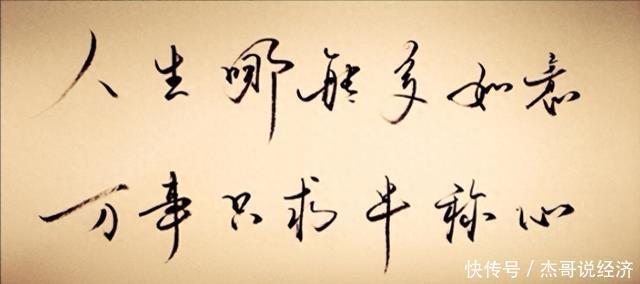 人生哪能多如意
万事只求半称心
快传号/杰哥说经济